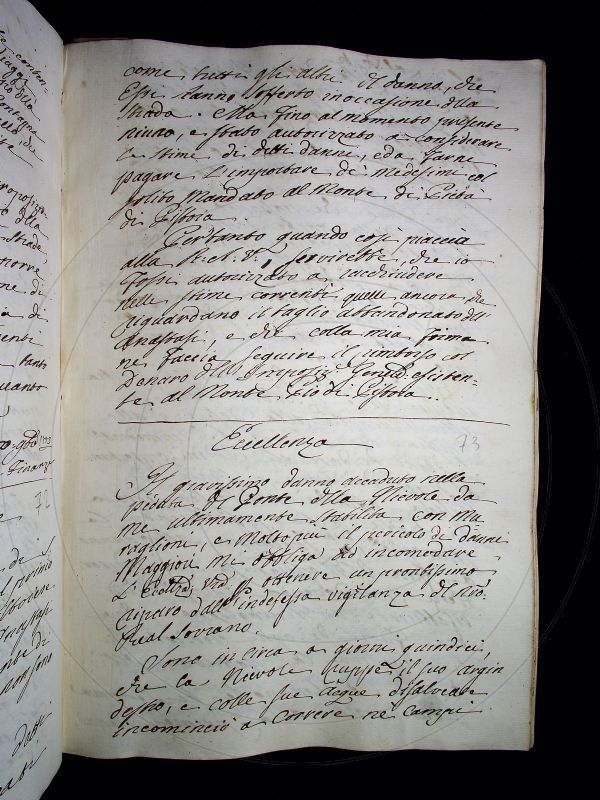 come tutti gli altri il danno, che
Essi hanno sofferto in occasione della
strada. Ma fino al momento presente
niuno, e stato autorizzato a considerare
le stime di detti danni, e da farne
pagare l'importare de medesimi col
solito Mandato al Monte di Pietà
di Pistoia.
Pertanto quando così piaccia
alla R.A.V., servirebbe, che io
fossi autorizzato a racchiudere
nelle stime correnti quelle ancora che
riguardano il taglio abbandonato dell
Anastasi, e che colla mia firma
ne faccia seguire il rimborso col
Denaro dell Imposiz. Genle esisten-
te al Monte Pio di Pistoia.
Eccellenza
73
Il gravissimo danno accaduto nella
pedata del Ponte della Nievole da
me ultimamente stabilita con mu
raglioni, e molto piu il pericolo di danni
Maggiori mi obbliga ad incomodare
L'Eccellza Vra P ottenere un prontissimo
riparo dall'indefessa vigilanza del nro
Real Sovrano.
Sono in circa a giorni quindici,
che la Nievole ruppe il suo argin
destro, e colle sue acque disalveate
incominciò a correre ne campi
72
Finanze